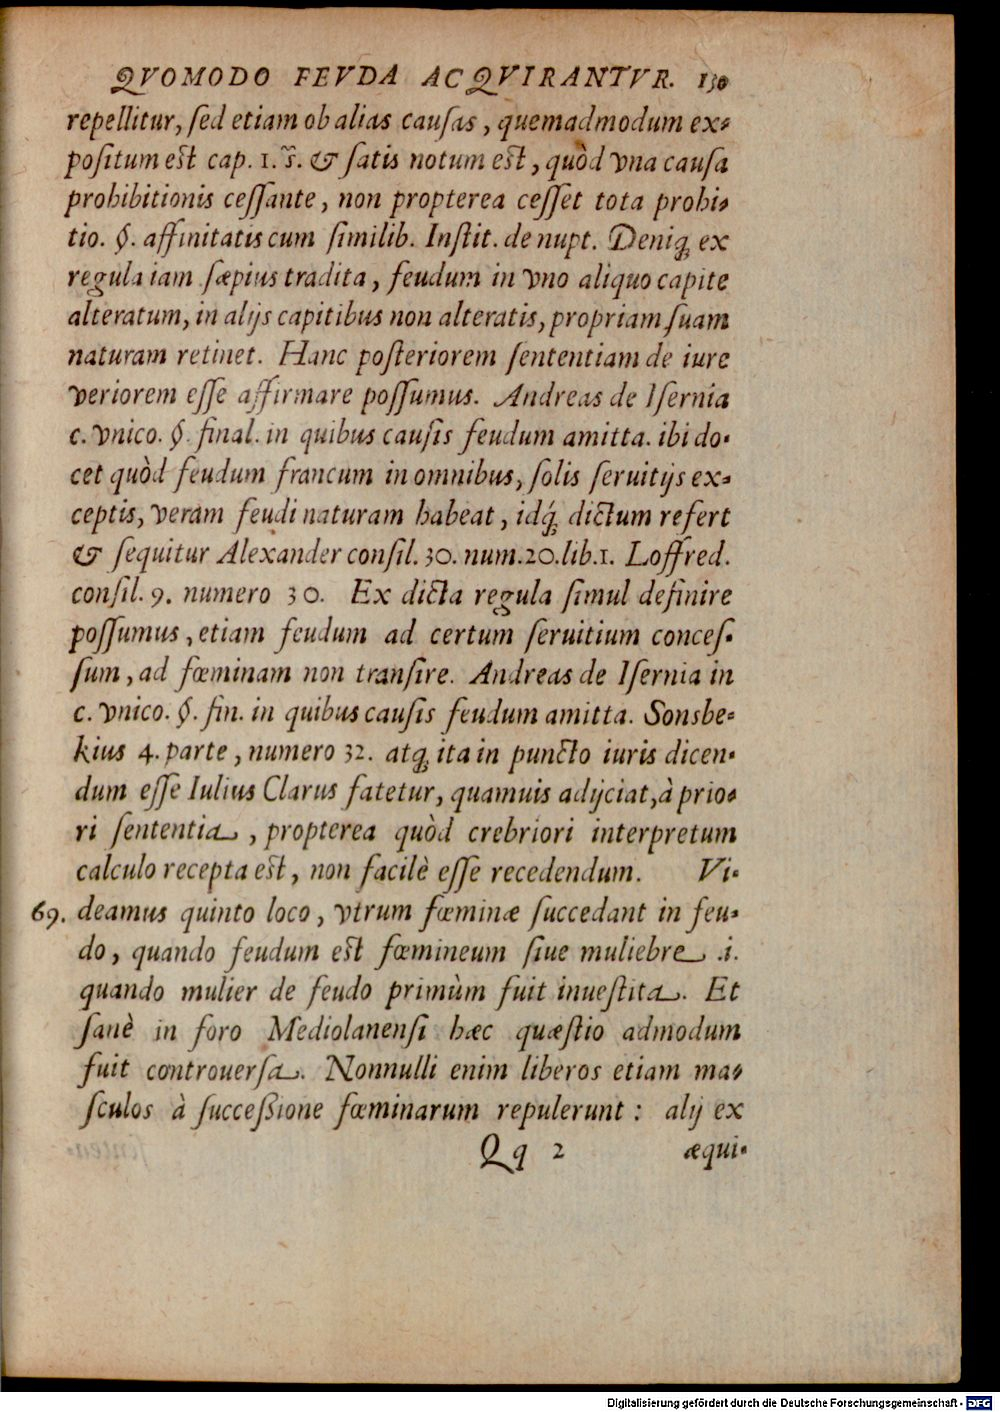 QVOMODO FEVDA ACQVIRANTVR. 150
repellitur, ſed etiam ob alias cauſas, quemadmodum ex-
poſitum eſt cap. 1. s̃. & ſatis notum eſt, quòd vna cauſa
prohibitionis ceſſante, non propterea ceſſet tota prohi-
tio. §. affinitatis cum ſimilib. Inſtit. de nupt. Deniq; ex
regula iam ſæpius tradita, feudum in vno aliquo capite
alteratum, in alijs capitibus non alteratis, propriam ſuam
naturam retinet. Hanc poſteriorem ſententiam de iure
veriorem eſſe affirmare poſſumus. Andreas de Iſernia
c. vnico. §. final. in quibus cauſis feudum amitta. ibi do-
cet quòd feudum francum in omnibus, ſolis ſeruitijs ex-
ceptis, veram feudi naturam habeat, idq́; dictum refert
& ſequitur Alexander conſil. 30. num. 20. lib. 1. Loffred.
conſil. 9. numero 30. Ex dicta regula ſimul definire
poſſumus, etiam feudum ad certum ſeruitium conceſ-
ſum, ad fœminam non tranſire. Andreas de Iſernia in
c. vnico. §. fin. in quibus cauſis feudum amitta. Sonsbe-
kius 4. parte, numero 32. atq; ita in puncto iuris dicen-
dum eſſe Iulius Clarus fatetur, quamuis adijciat, à prio-
ri ſententia, propterea quòd crebriori interpretum
calculo recepta eſt, non facilè eſſe recedendum. Vi-
69. deamus quinto loco, vtrum fœminæ ſuccedant in feu-
do, quando feudum eſt fœmineum ſiue muliebre .i.
quando mulier de feudo primùm fuit inueſtita. Et
ſanè in foro Mediolanenſi hæc quæſtio admodum
fuit controuerſa. Nonnulli enim liberos etiam ma-
ſculos à ſucceßione fœminarum repulerunt: alij ex
Qq 2 æqui-
Digitalisierung gefördert durch die Deutsche Forschungsgemeinschaft - DFG